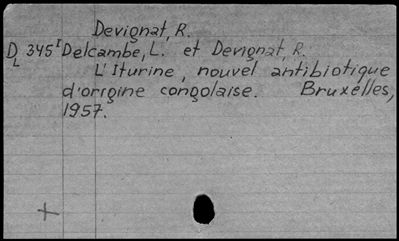 Devignat, R.
D 345 I Delcambe, L. et Devignat, R.
L
L'Iturine, nouvel antibiotique
d'origine congolaise. Bruxelles,
1957.
+